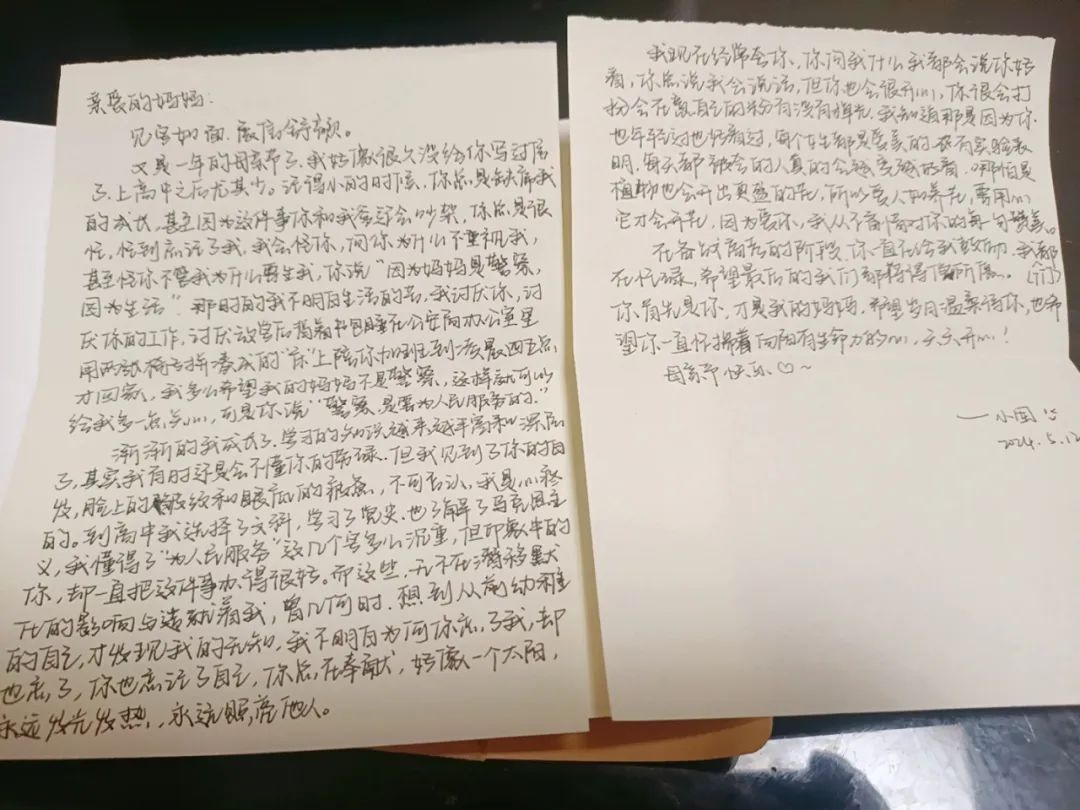 亲爱的妈妈：
见字如面，展信舒颜。
又是一年的母亲节了，我好像很久没给你写过信
了，上高中之后尤其少。记得小的时候，你总是缺席我
的成长，甚至因为这件事你和我爸还会吵架，你总是很
忙，忙到忘记了我，我会怪你，问你为什么不重视我，
甚至怪你不管我为什么要生我，你说“因为妈妈是警察，
因为生活”那时的我不明白生活的苦，我讨厌你，讨
厌你的工作，讨厌放学后揹着书包睡在公安局办公室里
用两张椅子拼凑成的“床”上陪你加班到凌晨四五点
才回家，我多么希望我的妈妈不是警察，这样就可以
给我多一点关心，可是你说“警察是要为人民服务的。”
渐渐的我成长了，学习的知识越来越丰富和深层
了，其实我有时还是会不懂你的忙碌，但我见到了你的白
发，脸上的皱纹和眼底的疲惫，不可否认，我是心疼
的。到高中我选择了文科，学习了党史，也了解了马克思主
义，我懂得了“为人民服务”这几个字多么沉重，但印象中的
你，却一直把这件事办得很好。而这些，无不在潜移默
化的影响与造就着我，曾几何时，想到从前幼稚
的自己，才发现我的无知，我不明白为何你忘了我，却
也忘了，你也忘记了自己，你总在奉献，好像一个太阳，
永远发光发热，永远照亮他人。
我现在经常夸你，你问我什么我都会说你好
看，你总说我会说话，但你也会很开心，你很会打
扮会在意自己的粉有没有掉光，我知道那是因为你
也年轻过也好看过，每个女生都是爱美的。也有实验表
明，每天都被夸的人真的会越变越好看，哪怕是
植物也会开出更盛的花，所以爱人如养花，要用心
它才会开花，因为爱你，我从不吝啬对你的每一句赞美。
在备战高考的阶段，你一直在给我鼓励，我都
在忙碌，希望最后的我们都将得偿所愿。
你首先是你，才是我的妈妈，希望岁月温柔待你，也希
望你一直怀揣着向阳有生命力的心，天天开心！
母亲节快乐♡~
——小国
2024.5.12